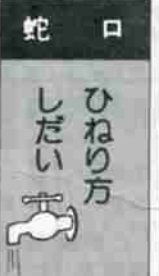 蛇口
ひねり方
しだい